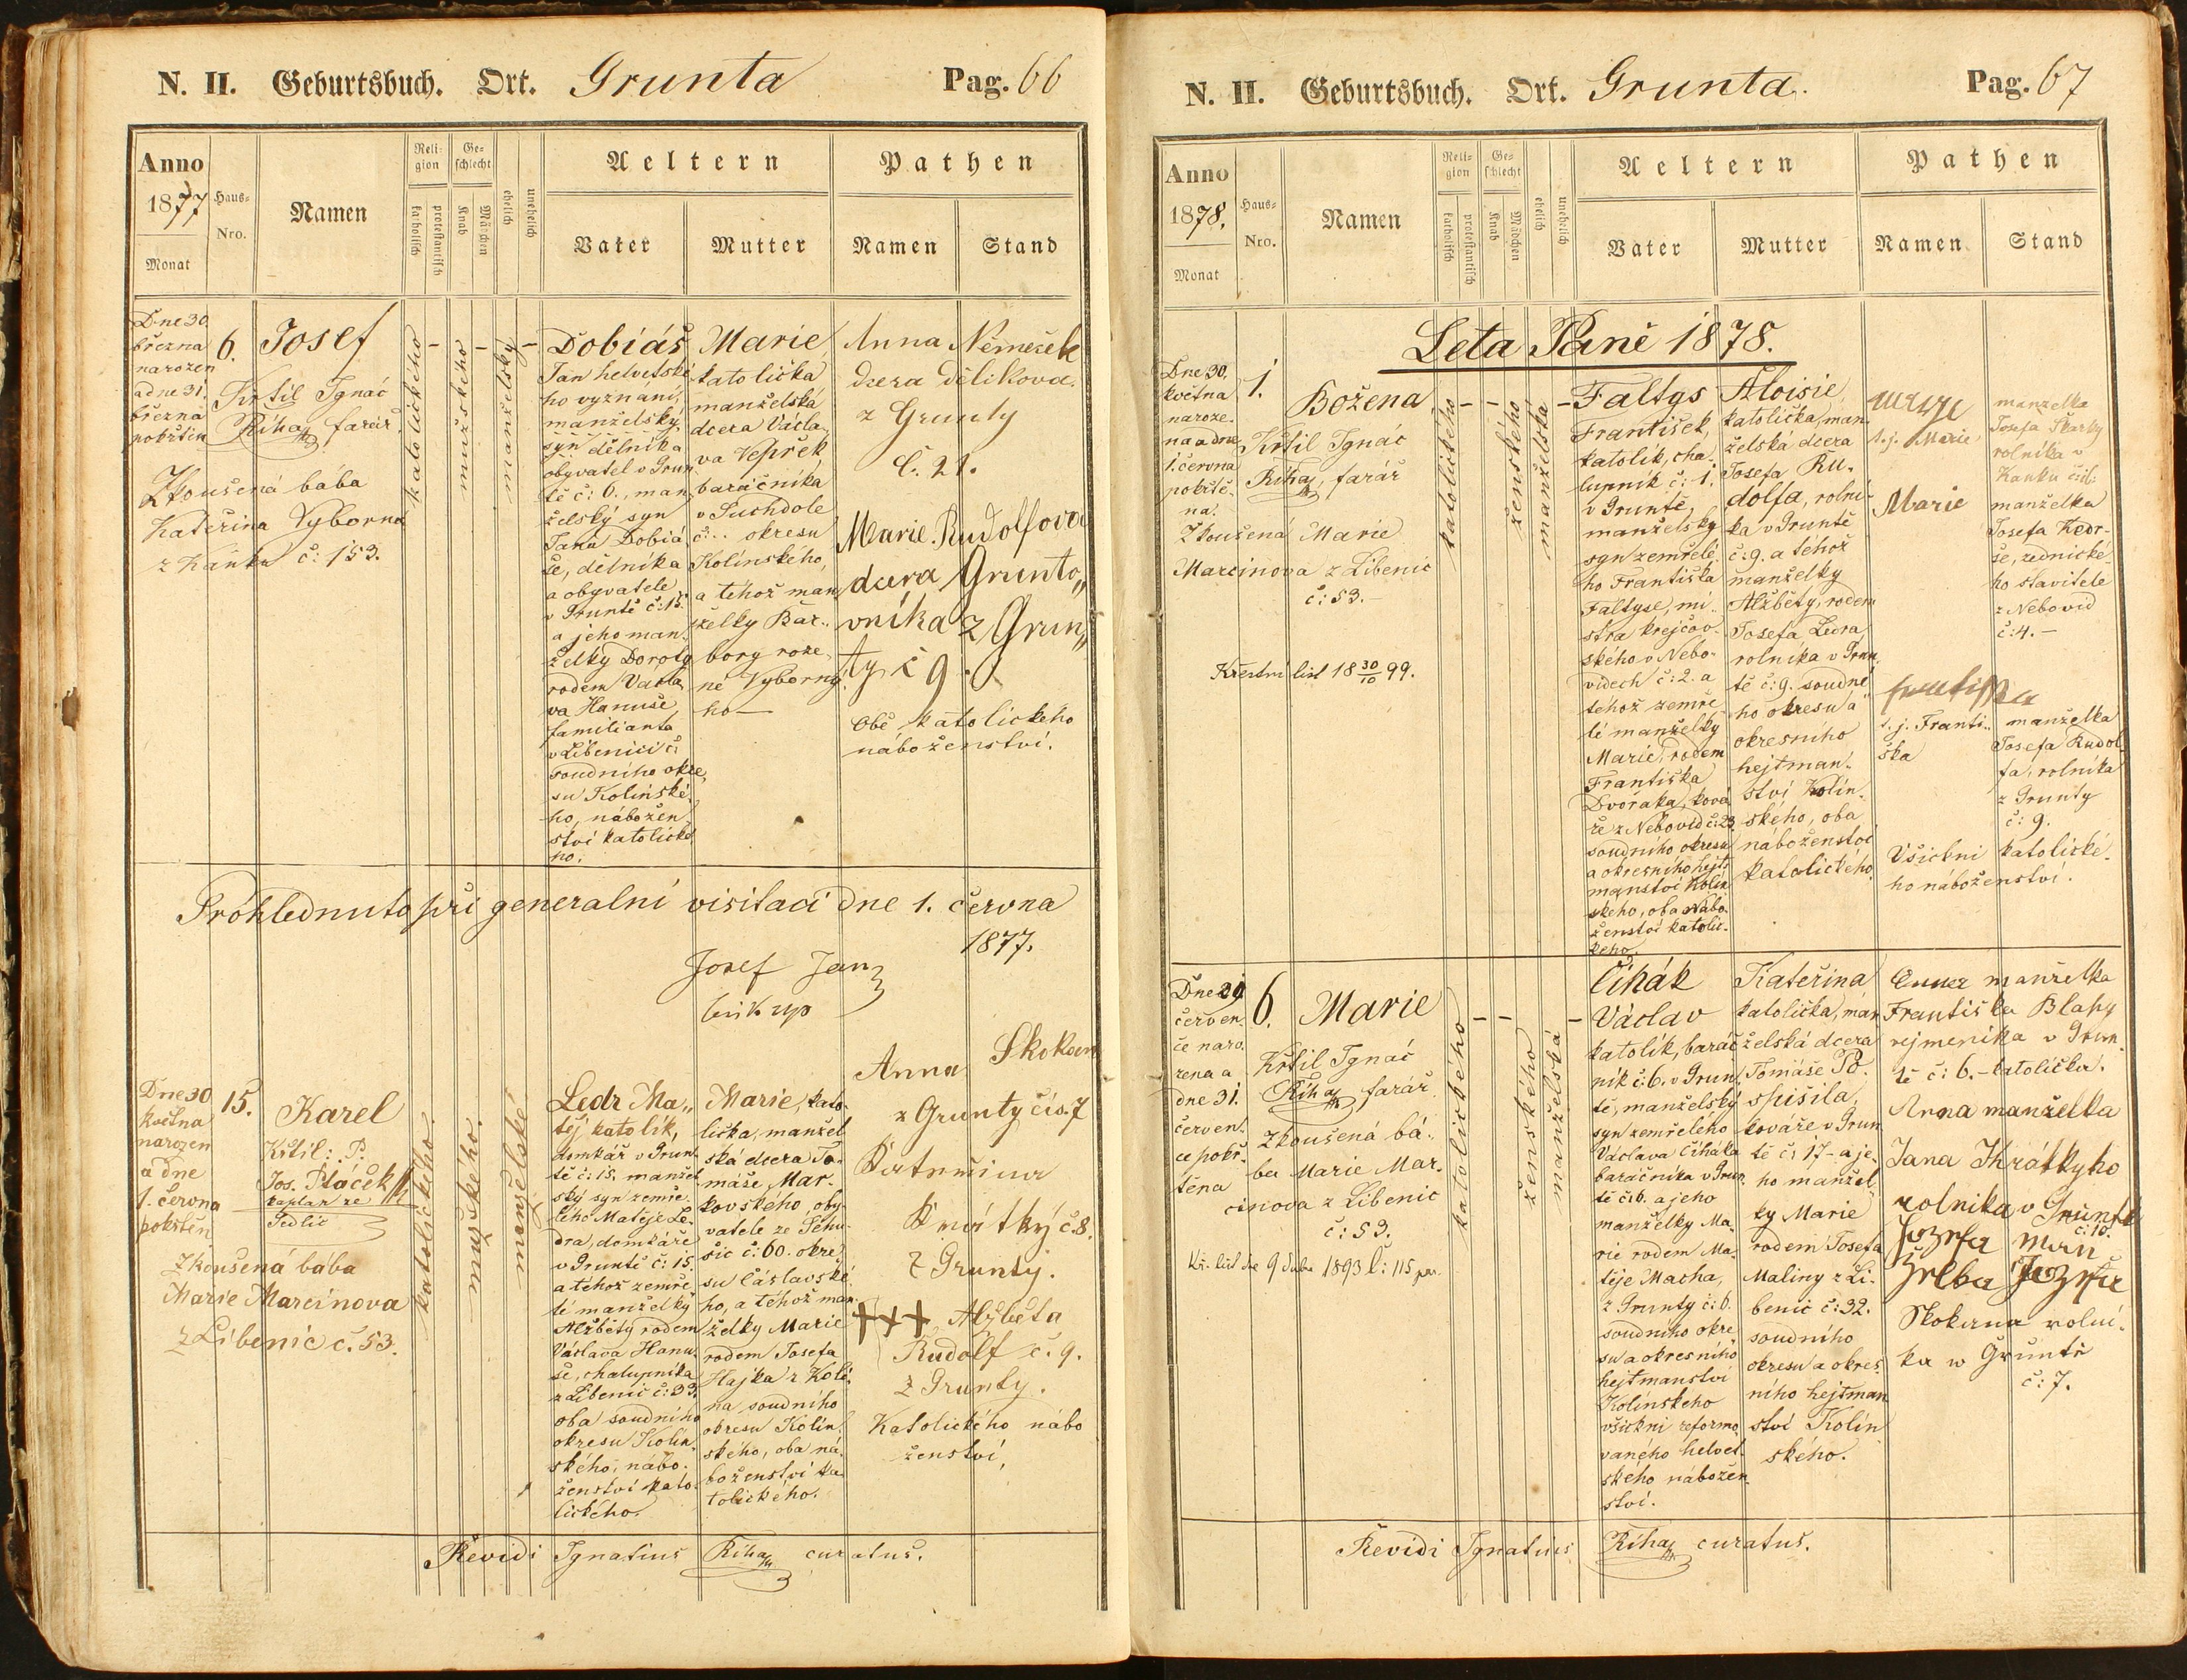 N. II. Geburtsbuch. Ort. Grunta Pag. 66
Anno
1877
Monat
Haus-
Nro.
Namen
Reli-
gion
katholisch
protestantisch
Ge-
schlecht
Knab
Mädchen
ehelich
unehelich
Aeltern
Vater
Mutter
Pathen
Namen
Stand
Dne 30.
března
narozen
a dne 31.
března
pokřtěn
6.
Josef
Krtil Ignác
Říha farář.
Zkoušená bába
Kateřina Vyborna
z Kaňku č: 153.
katolického
–
mužského
–
manželský
–
Dobiáš
Jan helvetské
ho vyznání,
manželský
syn dělníka
obyvatel v Grun
tě č: 6., man
želský syn
Jana Dobiá
še, dělníka
a obyvatele
v Gruntě č: 15.
a jeho man
želky Doroty
rodem Václa
va Hanuše
familianta
v Libenici č:
soudního okre
su Kolínské
ho, nábožen
ství katolické
ho.
Marie
katolička
manželská
dcera Václa
va Vepřek
baráčníka
v Suchdole
č... okresu
Kolínského,
a téhož man
želky Bar..
bory roze
né Vyborný
ho —
Anna Němeček
dcera dělikova.
z Grunty
č. 21.
Marie Rudolfova
dcera Grunto„
vníka z Grun„
ty č 9.
Obě katolického
náboženství.
Prohlednuto při generalní visitaci dne 1. června
1877.
Josef Jan
biskup
Dne 30
května
narozen
a dne
1. června
pokřtěn
15.
Karel
Křtil: P.
Jos. Ptáček
kaplan ze
Sedlic
Zkoušená bába
Marie Marcinova
z Libenic č. 53.
katolického.
mužského.
manželské
Ledr Ma„
těj katolík,
domkář v Grun
tě č: 15. manžel
ský syn zemře
lého Matěje Le
dra, domkáře
v Gruntě č: 15.
a téhož zemře
lé manželky
Alžběty rodem
Václava Hanu
še, chalupníka
z Libenic č: 33.
oba soudního
okresu Kolín
ského, nábo
ženství kato
lického.
Marie, kato
lička, manžel
ská dcera To
máše Mar
kovského, oby
vatele ze Tchu
šic č: 60. okre
su Čáslavské
ho, a téhož man
želky Marie
rodem Josefa
Hajka z Kolí
na soudního
okresu Kolín
ského, oba ná
boženství ka
tolického.
Anna Skokan
z Grunty čís. 7
Kateřina
Krátký č 8.
z Grunty.
+++ Alžběta
Rudolf č. 9.
z Grunty.
Katolického nábo
ženství,
Revidi Ignatius Říha curatus.
N. II. Geburtsbuch. Ort. Grunta. Pag. 67
Anno
1878.
Monat
Haus-
Nro.
Namen
Reli-
gion
katholisch
protestantisch
Ge-
schlecht
Knab
Mädchen
ehelich
unehelich
Aeltern
Vater
Mutter
Pathen
Namen
Stand
Leta Páně 1878.
Dne 30.
května
naroze.
na a dne
1. června
pokřtě.
na.
1.
Božena
Křtil Ignác
Říha, farář
Zkoušená Marie
Marcinova z Libenic
č: 53.–
Křestní list 18 30/10 99.
katolického
–
–
ženského
manželská
–
Faltys
František,
katolík, cha
lupník č: 1.
v Gruntě,
manželský
syn zemřelé
ho Františka
Faltyse, mi
stra krejčov
ského v Nebo
videch č: 2. a
téhož zemře
lé manželky
Marie, rodem
Františka
Dvořaka, ková
ře z Nebovid č: 23
soudního okresu
a okresního hejt
manství Kolín
ského, oba nábo
ženství katolic
kého.
Aloisie
katolička, man
želská dcera
Josefa Ru
dolfa, rolní
ka v Gruntě
č: 9. a téhož
manželky
Alžběty, rodem
Josefa Ledra
rolníka v Grun
tě č: 9. soudní
ho okresu a
okresního
hejtman
ství Kolín
ského, oba
náboženství
katolického.
t. j. Marie
manželka
Josefa Škarky
rolníka v
Kaňku čís:
Marie
manželka
Josefa Kedr-
še, zednické
ho stavitele
z Nebovid
č: 4.–
Františka
t. j. Franti..
ška
manželka
Josefa Rudol
fa, rolníka
z Grunty
č: 9.
Všickni katolické
ho náboženství.
Dne 29
červen.
ce naro.
zena a
dne 31.
červen.
ce pokř.
těna
6.
Marie
Křtil Ignác
Říha farář
Zkoušená bá
ba Marie Mar
cinova z Libenic
č: 53.
Kř. list dne 9 dubna 1893 č: 115
katolického
–
–
ženského
manželská
–
Čihák
Václav
katolík, baráč
ník č: 6. v Grun
tě, manželský
syn zemřelého
Václava Čiháka
baračníka v Grun
tě č: 6. a jeho
manželky Ma
rie rodem Ma
těje Macha,
z Grunty č: 6.
soudního okre
su a okresního
hejtmanství
Kolínského
všickni reformo
vaného helvet
ského nábožen
ství.
Kateřina
katolička, man
želská dcera
Tomáše Po
spíšila,
kováře v Grun
tě č: 17– a je
ho manžel
ky Marie
rodem Josefa
Maliny z Li
benic č: 32.
soudního
okresu a okres
ního hejtman
ství Kolín
ského.
Anna manželka
Františka Blahy
nejmeníka v Grun
tě č: 6.– katolička.
Anna manželka
Jana Krátkyho
rolníka v Gruntě
č: 10.
Jozefa man
želka Jozefa
Skokana rolní
ka w Gruntě
č: 7.
Revidi Ignatius Říha curatus.